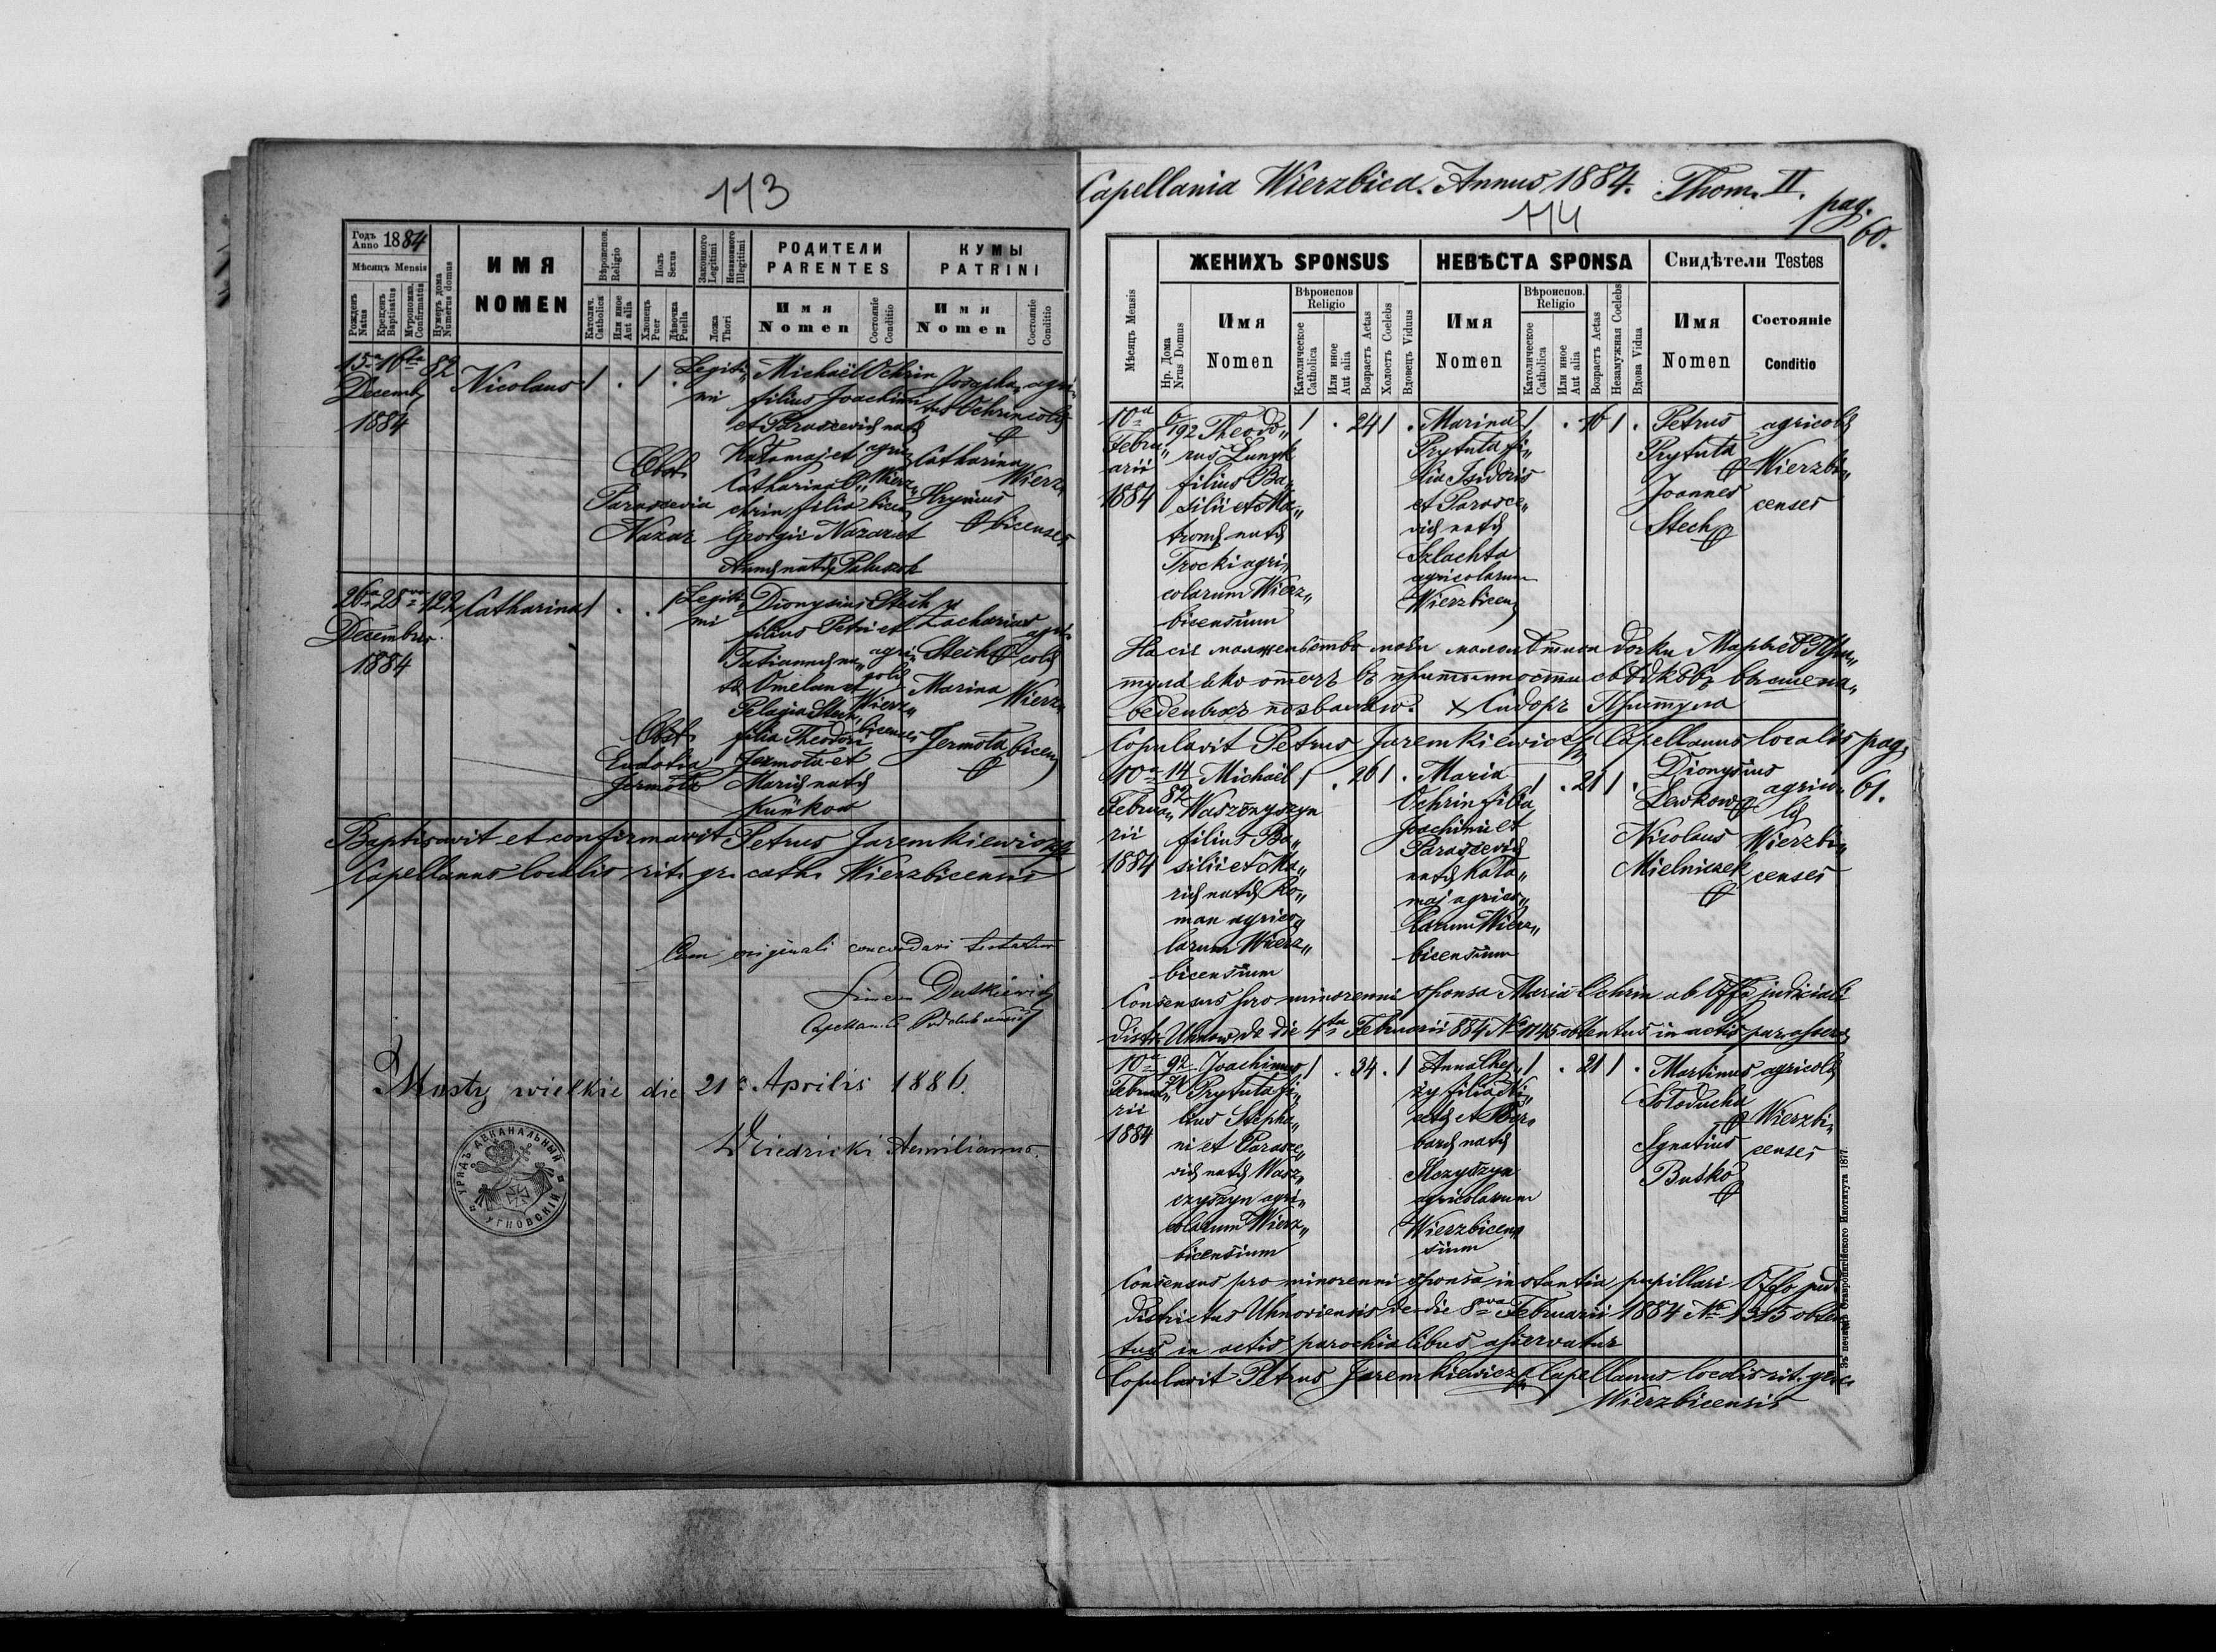 113
Годъ Anno 1884
Мѣсяцъ Mensis
Рожденъ Natus
Крещенъ Baptisatus
Муропомаз. Confirmatus
Нумеръ дома Numerus domus
ИМЯ
NOMEN
Вѣроиспов. Religio
Католич. Catholica
Или иное Aut alia
Полъ Sexus
Хлопець Puer
Дѣвочка Puella
Законного Legitimi
Незаконного Illegitimi
Ложа Thori
РОДИТЕЛИ
PARENTES
Имя
Nomen
Состояніе Conditio
КУМЫ
PATRINI
Имя
Nomen
Состояніе Conditio
15a 16ta 82
Decemb
1884
Nicolaus 1 . 1 .
Legiti„
mi
Michaël Ochrin
filius Joachimi
et Parascevia nata
Katamaj et
Catharina O„
chrin filia
Georgii Nazar et
Anna nata
agric
Wierz„
bicen
Obst.
Parascevia
Nazar
Josapha„
tus Ochrin
Catharina
Hrynius
agri„
colæ
Wierz„
bicenses
26ta 28va 122
Decembris
1884
Catharina 1 . . 1
Legiti„
mi
Dionysius Stech
filius Petri et
Tatianna na„
ta Omelan et
Pelagia Stech
filia Theodori
Jermota et
Maria nata
Kuńkow
agri„
colæ
Wierz„
bicenses
Obst.
Eudokia
Jermota
Zacharias
Stech
Marina
Jermota
agri„
colæ
Wierz„
bicen
Baptisavit et confirmavit Petrus Jaremkiewicz
Capellanus localis rit. gr. cath. Wierzbicensis
Cum originali concordari testatur
Simeon Dutkiewicz
Capellanus
Mosty wielkie die 21a Aprilis 1886.
Aemilianus
УРЯДЪ ДЕКАНАЛЬНЫЙ
УГНОВСКІЙ
Capellania Wierzbica. Annus 1884. Thom. II. pag.
60.
114
Мѣсяцъ Mensis
Нр. Дома Nrus Domus
ЖЕНИХЪ SPONSUS
Имя
Nomen
Вѣроиспов Religio
Католическое Catholica
Или иное Aut alia
Возрастъ Aetas
Холостъ Coelebs
Вдовецъ Viduus
НЕВѢСТА SPONSA
Имя
Nomen
Вѣроиспов. Religio
Католическое Catholica
Или иное Aut alia
Возрастъ Aetas
Незамужная Coelebs
Вдова Vidua
Свидѣтели Testes
Имя
Nomen
Состояніе
Conditio
10a
Febru„
arii
1884
6
192
Theodo„
rus Lunyk
filius Ba„
silii et Ma„
trona nata
Trocki agri„
colarum Wierz„
bicensium
1 . 24 1 .
Marina
Prytuła fi„
lia Isidoris
et Parasce„
via nata
Szlachta
agricolarum
Wierzbicen
1 . 16 1 .
Petrus
Prytuła
Joannes
Stech
agricolæ
Wierzbi„
censes
На сіе моей малолѣтной дочки Марыи При„
тула яко отець въ притомности свѣдковъ вышена„
веденныхъ позваляю. × Сидоръ Притула
Copulavit Petrus Jaremkiewicz Capellanus localis
pag.
61.
10a
Februa„
rii
1884
14
82
Michaël
Waszczyszyn
filius Ba„
silii et Ma„
ria nata Ro„
man agrico„
larum Wierz„
bicensium
1 . 26 1 .
Maria
Ochrin filia
Joachimi et
Parascevia
nata Kata„
maj agrico„
larum Wierz„
bicensium
1 . 21 1 .
Dionysius
Lewkow
Nicolaus
Mielniczek
agrico„
læ
Wierzbi„
censes
Consensus pro minorenni sponsa Maria Ochrin ab Offo judiciali
distr. Uhnow de die 4ta Februarii 884 No 1145 obtentus in actis paroch
10a
Februa„
rii
1884
92
Joachimus
Prytuła fi„
lius Stepha„
ni et Parasce„
via nata Wasz„
czyszyn agri„
colarum Wierz„
bicensium
1 . 34 . 1
Anna
filia
et Bar„
bara nata
agricolarum
Wierzbicen„
sium
1 . 21 1 .
Martinus
Sołoducha
Ignatius
Busko
agricolæ
Wierzbi„
censes
Consensus pro minorenni sponsa instantia pupillari Offo jud
districtus Uhnoviensis de die 8va Februarii 1884 No 1315 obten
tus in actis parochialibus asservatur
Copulavit Petrus Jaremkiewicz Capellanus localis rit. gr. c.
Wierzbicensis
Зъ печатнѣ Ставропигійского Института 1877.